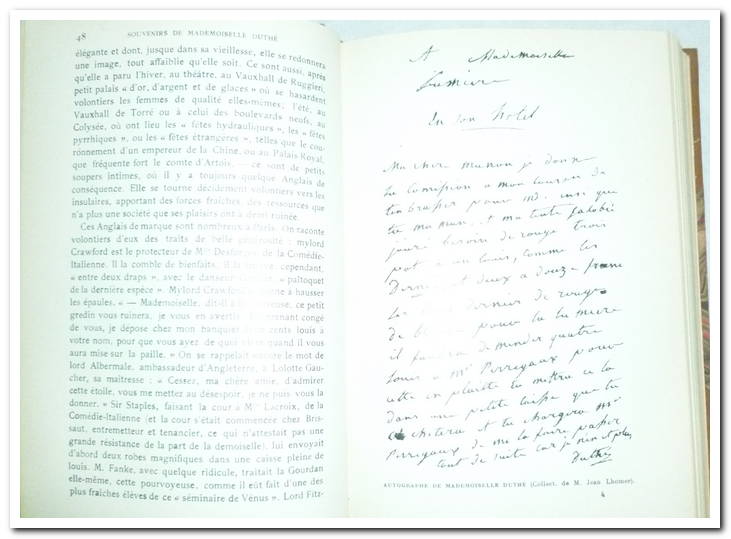 48 SOUVENIRS DE MADEMOISELLE DUTHÉ
élégante et dont, jusque dans sa vieillesse, elle se redonnera
une image, tout affaiblie qu'elle soit. Ce sont aussi, après
qu'elle a paru l'hiver, au théâtre, au Vauxhall de Ruggieri,
petit palais « d'or, d'argent et de glaces » où se hasardent
volontiers les femmes de qualité elles-mêmes; l'été, au
Vauxhall de Torré ou à celui des boulevards neufs, au
Colysée, où ont lieu les « fêtes hydrauliques », les « fêtes
pyrrhiques », ou les « fêtes étrangères », telles que le cou-
ronnement d'un empereur de la Chine, ou au Palais Royal,
que fréquente fort le comte d'Artois, — ce sont de petits
soupers intimes, où il y a toujours quelque Anglais de
conséquence. Elle se tourne décidément volontiers vers les
insulaires, apportant des forces fraîches, des ressources que
n'a plus une société que ses plaisirs ont à demi ruinée.
Ces Anglais de marque sont nombreux à Paris. On raconte
volontiers d'eux des traits de belle générosité : mylord
Crawford est le protecteur de Mlle de la Comédie-
Italienne. Il la comble de bienfaits. Il la trouve, cependant,
« entre deux draps », avec le danseur « paltoquet
de la dernière espèce ». Mylord Crawford à hausser
les épaules. « — Mademoiselle, dit-il à ce petit
gredin vous ruinera, je vous en avertis. prenant congé
de vous, je dépose chez mon banquier cents louis à
votre nom, pour que vous ayez de quoi quand il vous
aura mise sur la paille. » On se rappelait encore le mot de
lord Albermale, ambassadeur d'Angleterre, à Lolotte Gau-
cher, sa maîtresse : « Cessez, ma chère amie, d'admirer
cette étoile, vous me mettez au désespoir, je ne puis vous la
donner. » Sir Staples, faisant la cour à Mlle Lacroix, de la
Comédie-Italienne (et la cour s'était commencée chez Bris-
saut, entremetteur et tenancier, ce qui n'attestait pas une
grande résistance de la part de la demoiselle), lui envoyait
d'abord deux robes magnifiques dans une caisse pleine de
louis. M. Fanke, avec quelque ridicule, traitait la Gourdan
elle-même, cette pourvoyeuse, comme il eût fait d'une des
plus fraîches élèves de ce « séminaire de Vénus ». Lord Fitz-
A Mademoiselle
Lumiere
En son hotel
Ma chere maman je donne
la comission a mon coureur de
tembrasser pour moi
tu ma man, et ma toute
jauré besoin de rouge trois
pot a un louis, comme les
Derniers et deux a douze franc
de rouge
de pour la lumiere
il faudra demander quatre
Louis a Mr Perregaux pour
cela
dans une petite caisse que tu
achetera et tu chargera Mr
Perregaux de me la faire passer
tout de suite car je nen et plus
Duthé
AUTOGRAPHE DE MADEMOISELLE DUTHÉ (Collect. de M. Jean Lhomer).
4